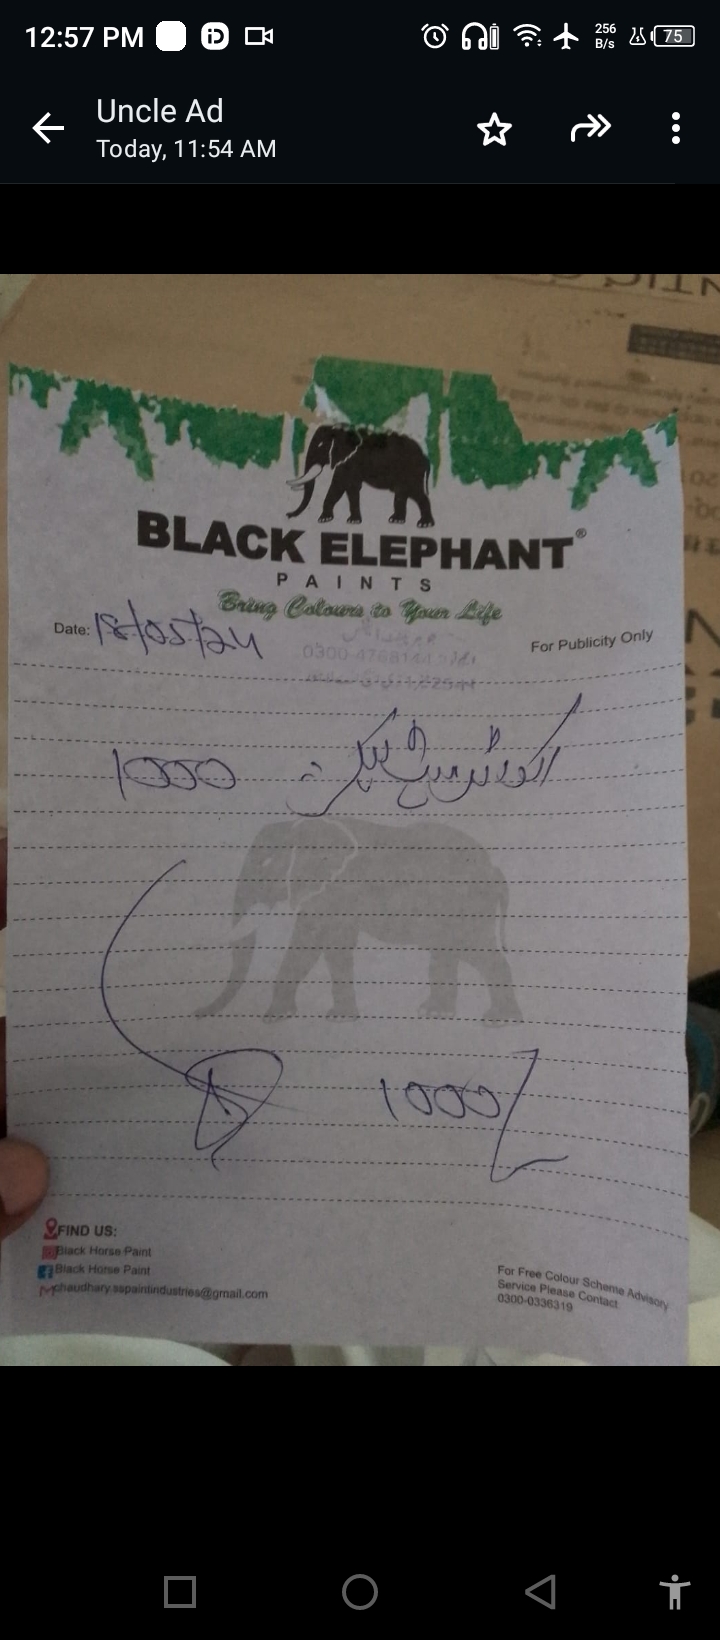 12:57 PM
256 B/s
75
Uncle Ad
Today, 11:54 AM
BLACK ELEPHANT®
PAINTS
Bring Colours to Your Life
Date: 18/05/24
For Publicity Only
1000
1000/
FIND US:
Black Horse Paint
Black Horse Paint
chaudhary.sspaintindustries@gmail.com
For Free Colour Scheme Advisory
Service Please Contact
0300-0336319